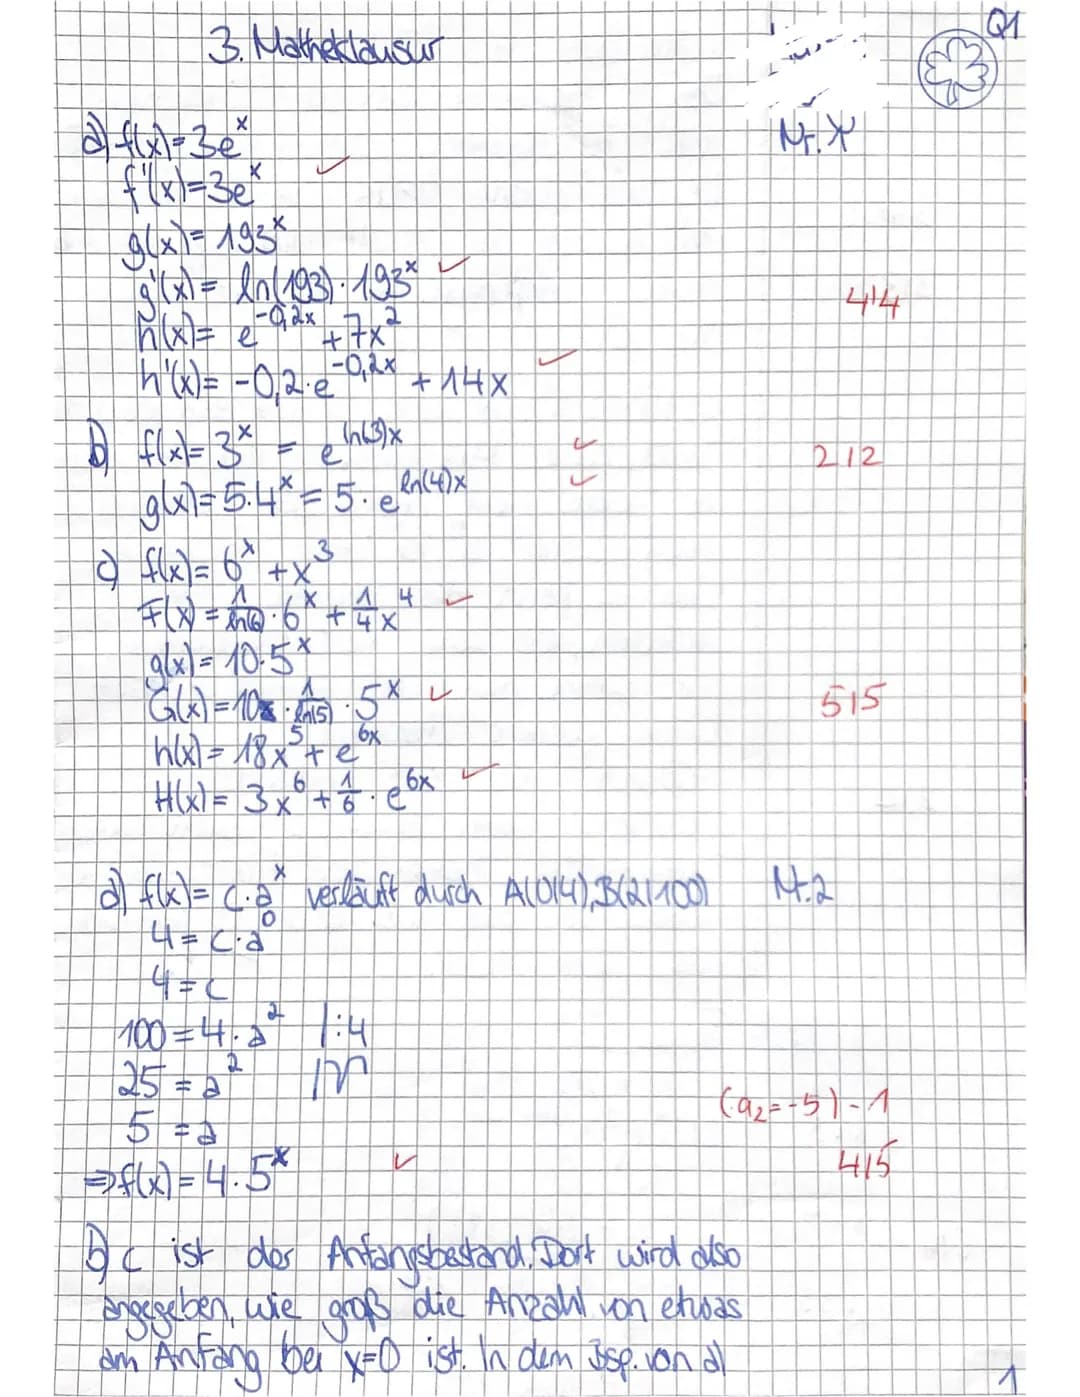 3. Matheklausur
Q1
Nr. 1
a) f(x)=3e^x
f'(x)=3e^x ✓
g(x)= 193^x
g'(x)= ln(193)·193^x ✓
4/4
h(x)= e^{-0,2x} +7x^2
h'(x)= -0,2·e^{-0,2x} + 14x ✓
b) f(x)= 3^x = e^{ln(3)x} ✓
2/2
g(x)=5·4^x = 5·e^{ln(4)x} ✓
c) f(x)= 6^x +x^3
F(x)= 1/ln(6)·6^x + 1/4 x^4 ✓
g(x)= 10·5^x
G(x)=10·1/ln(5)·5^x ✓
5/5
h(x)= 18x^5 + e^{6x}
H(x)= 3x^6 + 1/6·e^{6x} ✓
a) f(x)= c·a^x verläuft durch A(0|4), B(2|100) Nr. 2
4 = c·a^0
4 = c
100 = 4·a^2 |:4
25 = a^2 |√
(a₂=-5) -1
5 = a
4/5
⇒ f(x)= 4·5^x ✓
b) c ist der Anfangsbestand. Dort wird also
angegeben, wie groß die Anzahl von etwas
am Anfang bei x=0 ist. In dem Bsp. von a)
1